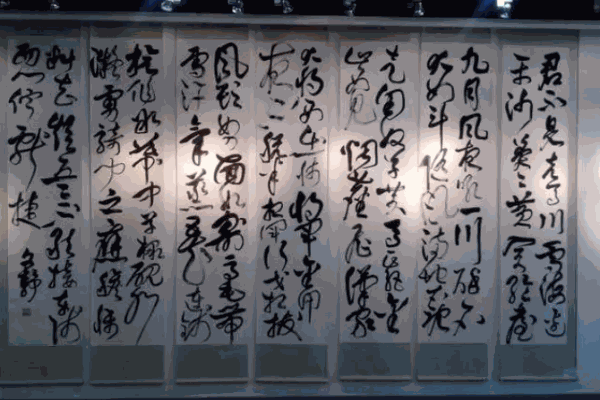 君不見走馬川雪海邊
平沙莽莽黄入天輪臺
九月風夜吼一川碎石
大如斗隨風滿地石亂
走匈奴草黄馬正肥金
山西見烟塵飛漢家
大將西出師將軍金甲
夜不脱半夜軍行戈相撥
風頭如刀面如割馬毛帶
雪汗氣蒸五花連錢
旋作冰幕中草檄硯水
凝虜騎聞之應膽懾
料知短兵不敢接車師
西門佇獻捷